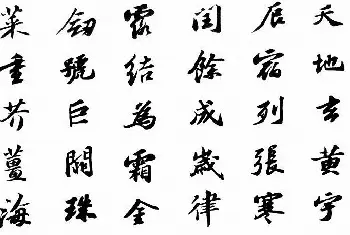 天地玄黃宇
辰宿列張寒
閏餘成歲律
露結為霜金
釼號巨闕珠
菜重芥薑海